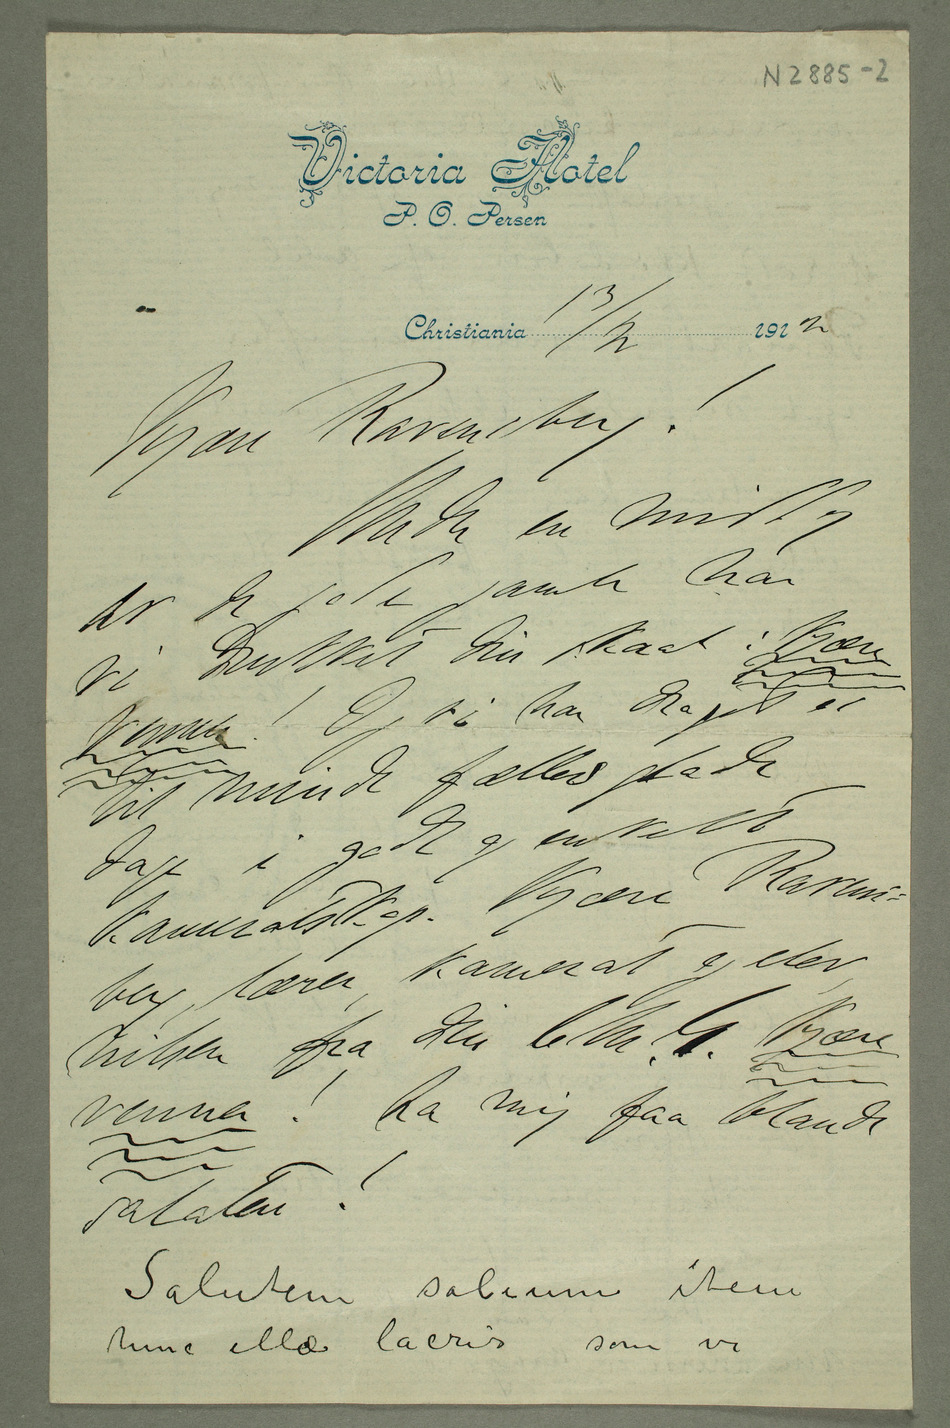 N2885-2
Victoria Hotel
P. O. Persen
Christiania 13/2 1912
Kjære Ravensberg!
Under en middag
av de gode gamle har
vi drukket din skaal: Kjære
venner! Og vi har draget os
til minde fælles glade
dage i godt og enkelt
kameratskap. Kjære Ravens=
berg, lærer, kamerat og elev,
hilsen fra din Chr. G. Kjære
venner! La mig faa blande
salaten!
Salutem salinum item
hinc illæ lacris som vi